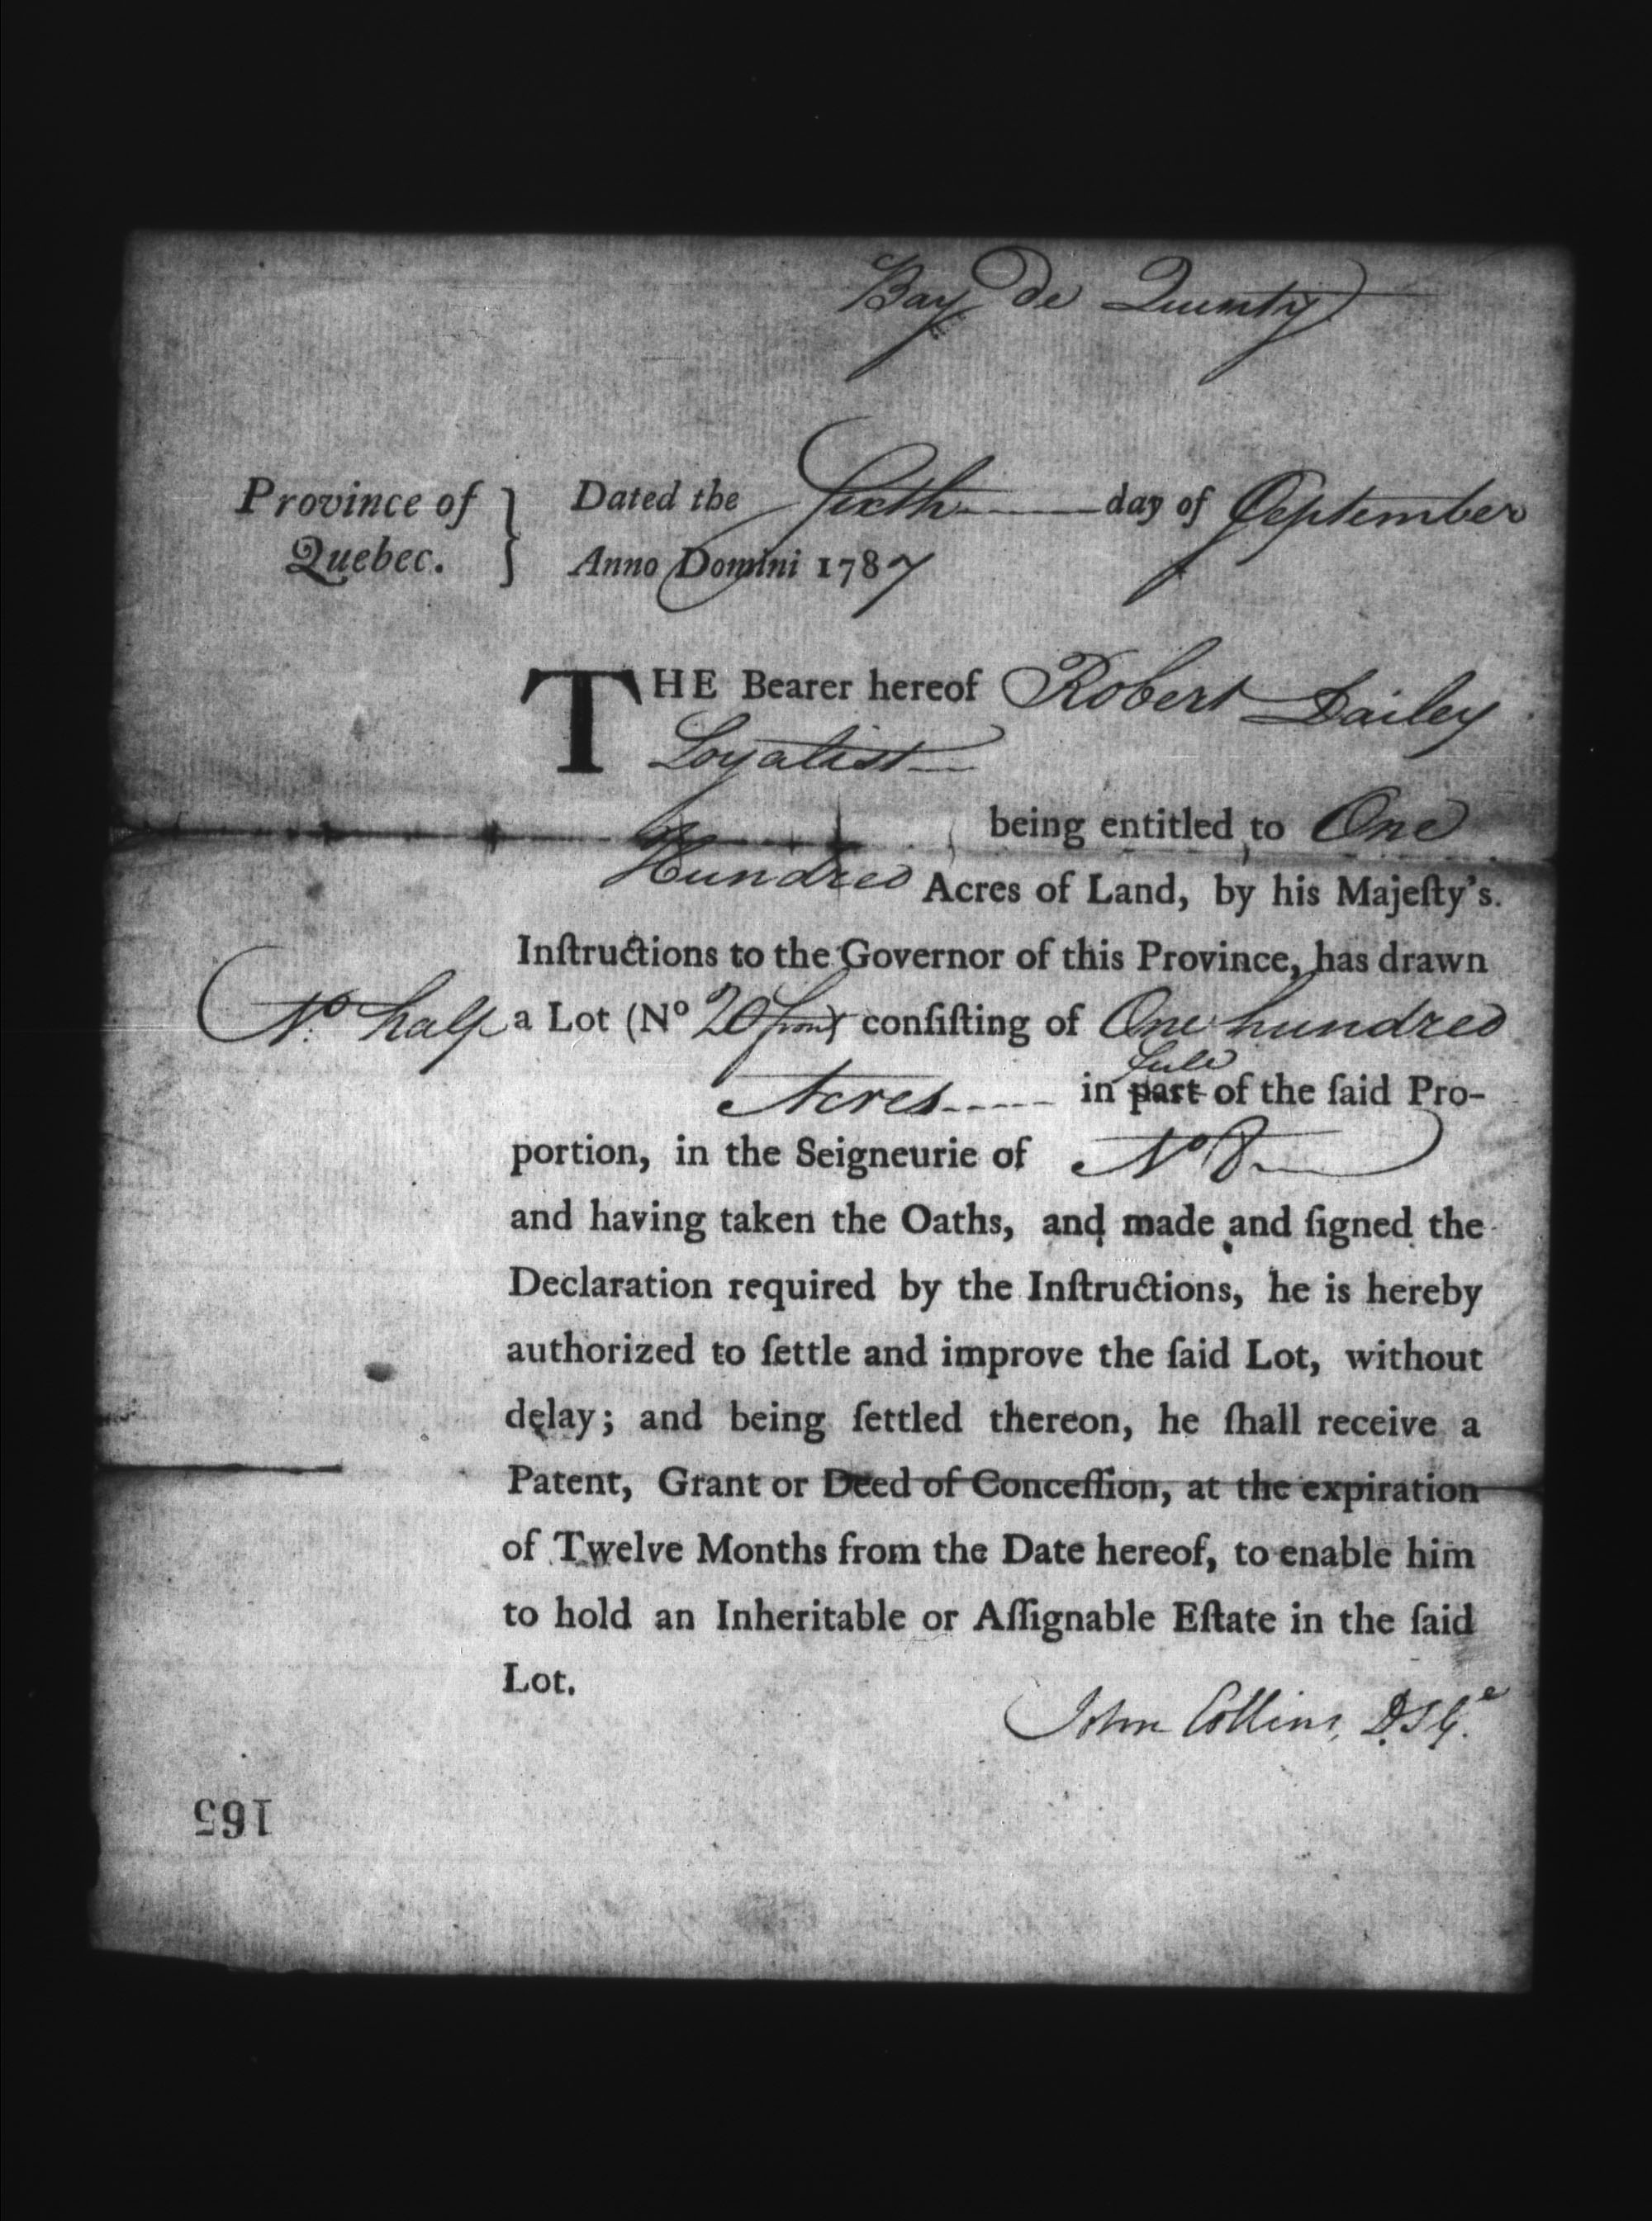 Bay de Quinty
Province of } Dated the Sixth day of September
Quebec. } Anno Domini 1787
THE Bearer hereof Robert Dailey
Loyalist
being entitled to One
Hundred Acres of Land, by his Majeſty's
Inſtructions to the Governor of this Province, has drawn
No. half a Lot (No 20 front) conſiſting of One hundred
full
Acres in part of the ſaid Pro-
portion, in the Seigneurie of No 8
and having taken the Oaths, and made and ſigned the
Declaration required by the Inſtructions, he is hereby
authorized to ſettle and improve the ſaid Lot, without
delay; and being ſettled thereon, he ſhall receive a
Patent, Grant or Deed of Conceſſion, at the expiration
of Twelve Months from the Date hereof, to enable him
to hold an Inheritable or Aſſignable Eſtate in the ſaid
Lot.
John Collins, D.S.G.
165